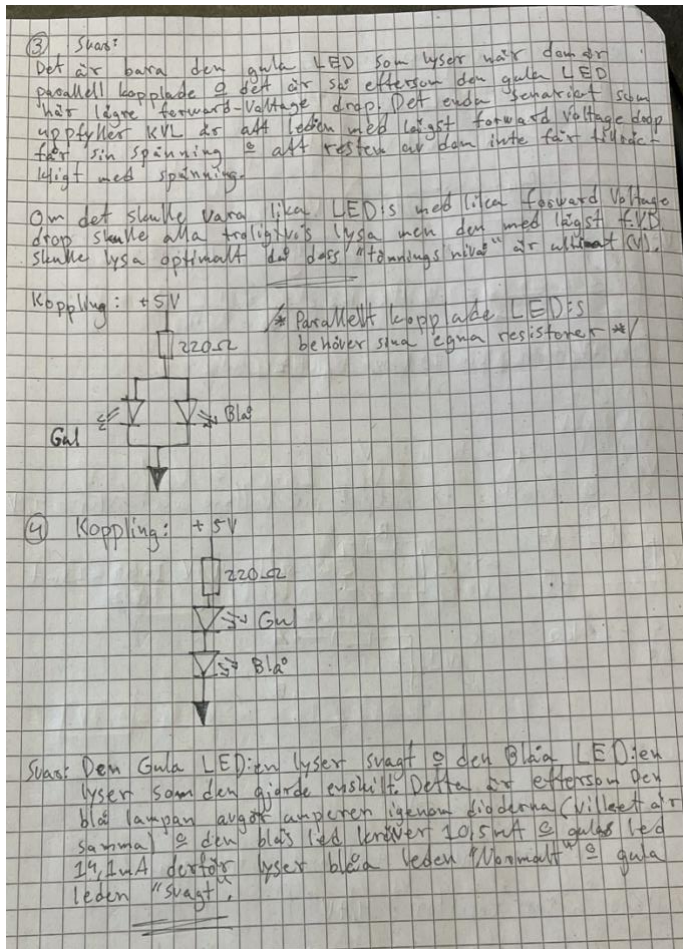 ③ Svar:
Det är bara den gula LED som lyser när dom är
parallell kopplade o det är så eftersom den gula LED
här lägre forward-voltage drop. Det enda senariot som
uppfyller KVL är att leden med lägst forward voltage drop
får sin spänning o att resten av dom inte får tillräck-
ligt med spänning.
Om det skulle vara lika LED:s med lika forward Voltage
drop skulle alla troligtvis lysa men den med lägst f.VD
skulle lysa optimalt då dess "tönnings nivå" är (V).
Koppling: +5V
/* Parallellt kopplade LED:s
behöver sina egna resistorer */
220Ω
Gul
Blå
④ Koppling: +5V
220Ω
Gul
Blå
Svar: Den Gula LED:en lyser svagt o den Blåa LED:en
lyser som den gjorde enskilt. Detta är eftersom Den
blå lampan avgör amperen igenom dioderna (vilket är
samma) o den blås led kräver 10,5mA o gulas led
14,1mA derför lyser blåa leden "Normalt" o gula
leden "svagt".